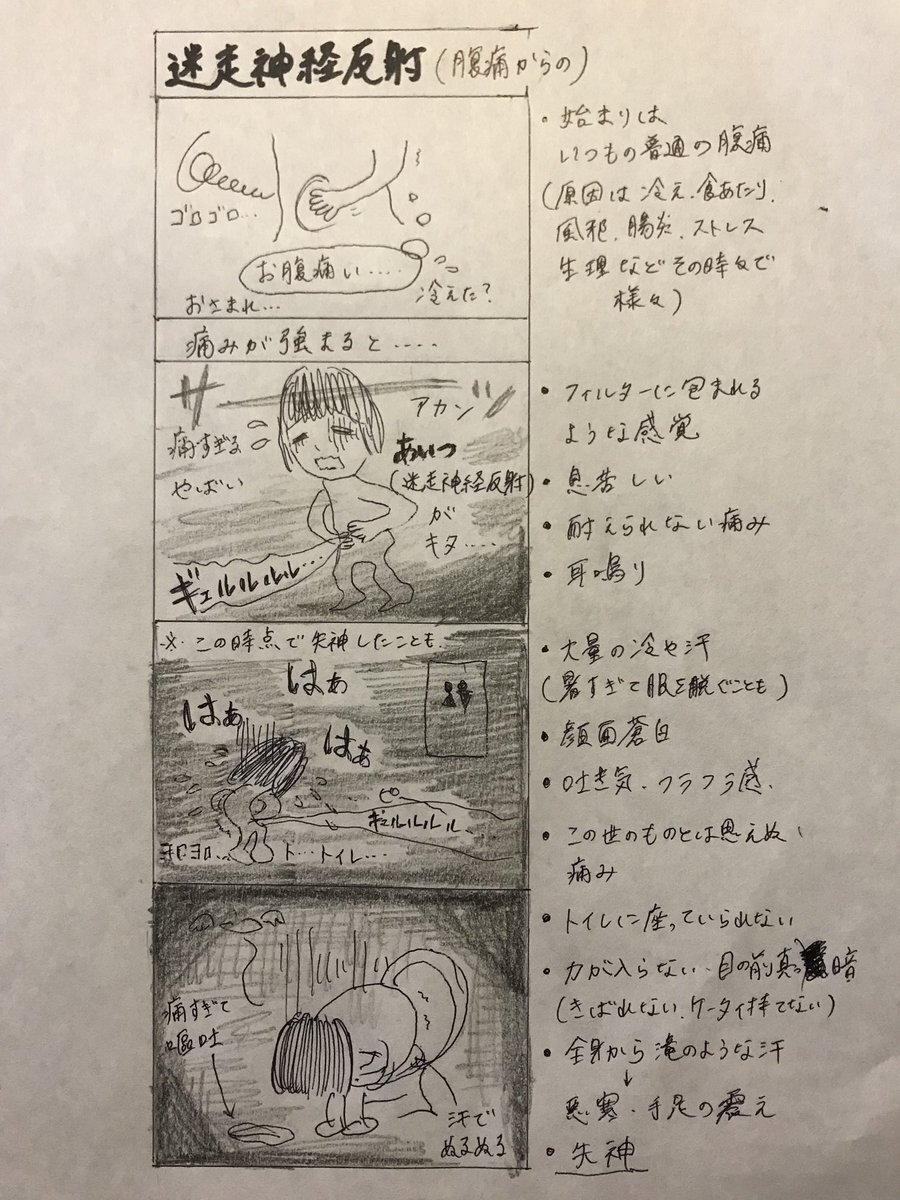 迷走神経反射(腹痛からの)
ゴロゴロ…
お腹痛い…..
冷えた?
おさまれ…
・始まりは
いつもの普通の腹痛
(原因は冷え、食あたり、
風邪、腸炎、ストレス
生理などその時々で
様々)
痛みが強まると…..
ザ
ッ
アカン
痛すぎる
やばい
あいつ
(迷走神経反射)
が
キタ….
ギュルルルル…
・フィルターに包まれる
ような感覚
・息苦しい
・耐えられない痛み
・耳鳴り
※この時点で失神したことも.
はぁ
はぁ
はぁ
ピー
ギュルルルル..
ヨロヨロ…
ト…トイレ…
・大量の冷や汗
(暑すぎて服を脱ぐことも)
・顔面蒼白
・吐き気、フラフラ感.
・この世のものとは思えぬ
痛み
痛すぎて
嘔吐
汗で
ぬるぬる
・トイレに座っていられない
・力が入らない、目の前真っ暗
(きばれない、ケータイ持てない)
・全身から滝のような汗
↓
悪寒・手足の震え
・失神